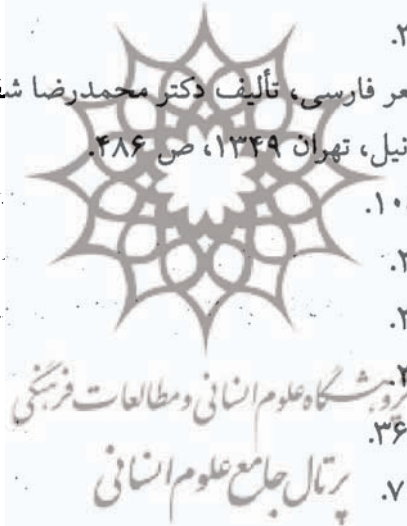 .۲
عر فارسی، تألیف دکتر محمدرضا
نیل، تهران ۱۳۴۹، ص ۴۸۶.
.۱۰
.۲
.۲
.۲
پژوهشگاه علوم انسانی و مطالعات فرهنگی
.۳۶
پرتال جامع علوم انسانی
.۷